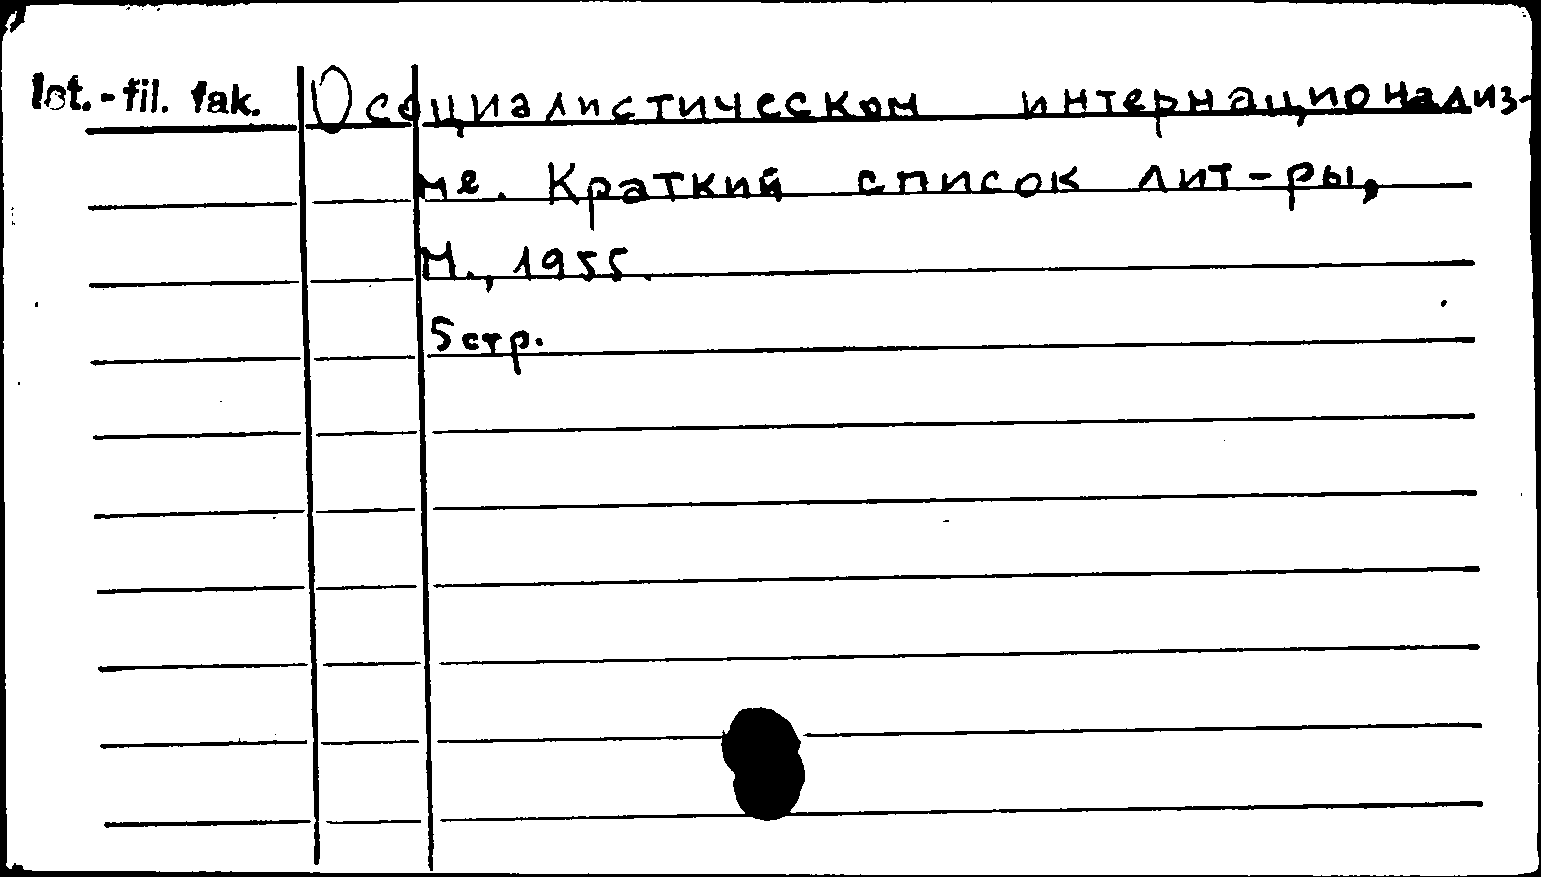 Ist.-fil. fak. О социалистическом интернационализ-
ме. Краткий список лит-ры,
М., 1955.
5 стр.